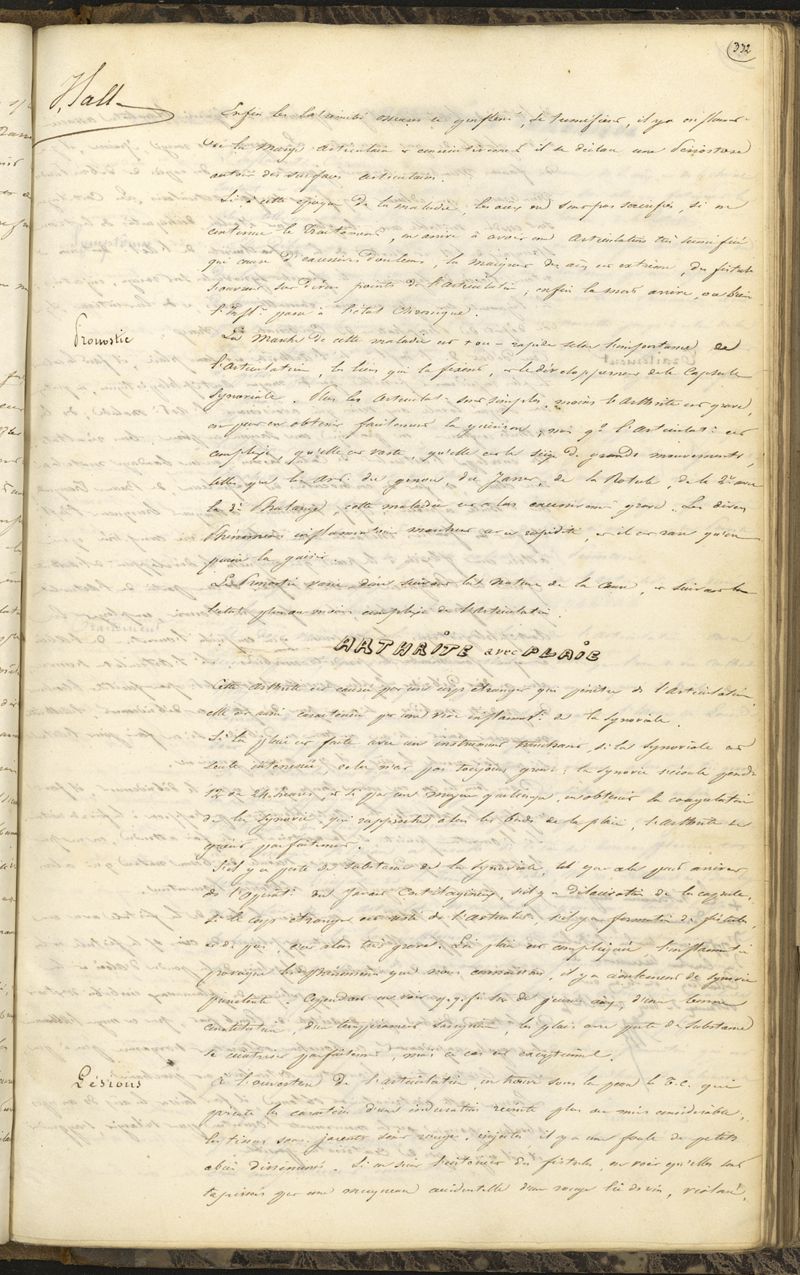 332
Hall
Enfin les extrémités osseuses se gonflent, se tuméfient, il y a
de la marge articulaire et consécutivement il se déclare une Périostose
autour des surfaces articulaires.
Si à cette époque de la maladie, les sont pas sacrifiés, si on
continue le Traitement, on arrive à avoir une Articulation très tuméfiée
qui cause d'excessives douleurs, la maigreur des est extrême, des fistules
s'ouvrent sur divers points de l'articulation ; enfin la mort arrive, ou bien
l'Infl. passe à l'état chronique.
Pronostic
La Marche de cette maladie est + ou - rapide selon l'importance de
l'Articulation, les liens qui la fixent, et le développement de la Capsule
Synoviale. Plus les Articulat. sont simples, moins l'Arthrite est grave,
on peut en obtenir facilement la guérison, mais qd l'articulat. est
complexe, qu'elle est vaste, qu'elle est le siège de grands mouvements,
telles que les Art. du genou du Jarret, de la Rotule, de la 2e avec
la 3e Phalange, cette maladie est alors excessivement grave. Les divers
Phénomènes inflammatoires marchent avec rapidité, et il est rare qu'on
puisse la guérir.
Le Pronostic varie donc suivant la nature de la Cause, et suivant
l'état plus ou moins complexe de l'Articulation.
ARTHRITE avec PLAIE
Cette Arthrite est causée par un corps étranger qui pénètre ds l'Articulation
elle est aussi caractérisée par une vive inflammt. de la synoviale.
Si la plaie est faite avec un instrument tranchant, si la Synoviale est
seule intéressée, cela n'est pas toujours grave ; la synovie s'écoule pendt
12 ou 24 heures, et si par un moyen quelconque, on obtient la coagulation
de la Synovie, qui rapproche alors les bords de la plaie, l'arthrite se
guérit parfaitement.
S'il y a perte de substance de la synoviale, tel que cela peut arriver
ds l'opérat. du Javart Cartilagineux, s'il y a dilacération de la capsule,
si le corps étranger est resté ds l'articulat., s'il y a formation de fistule,
et de pus, c'est alors très grave. La plaie est compliquée l'inflammt.
provoque les phénomènes que nous connaissons, il y a écoulement de synovie
purulente. Cependant on voit q.q.fois sur de jeunes , d'une bonne
constitution, d'un tempérament sanguin, les plaies avec perte de substance
se cicatriser parfaitement, mais ce cas est exceptionnel.
Lésions
A l'ouverture de l'articulation, on trouve sous la peau le T.C. qui
présente les caractères d'une induration récente plus ou moins considérable,
les tissus sous-jacents sont rouges, injectés, il y a une foule de petits
abcès disséminés. Si on suit l'intérieur des fistules, on voit qu'elles sont
tapissées par une muqueuse accidentelle d'un rouge lie de vin, violacé,